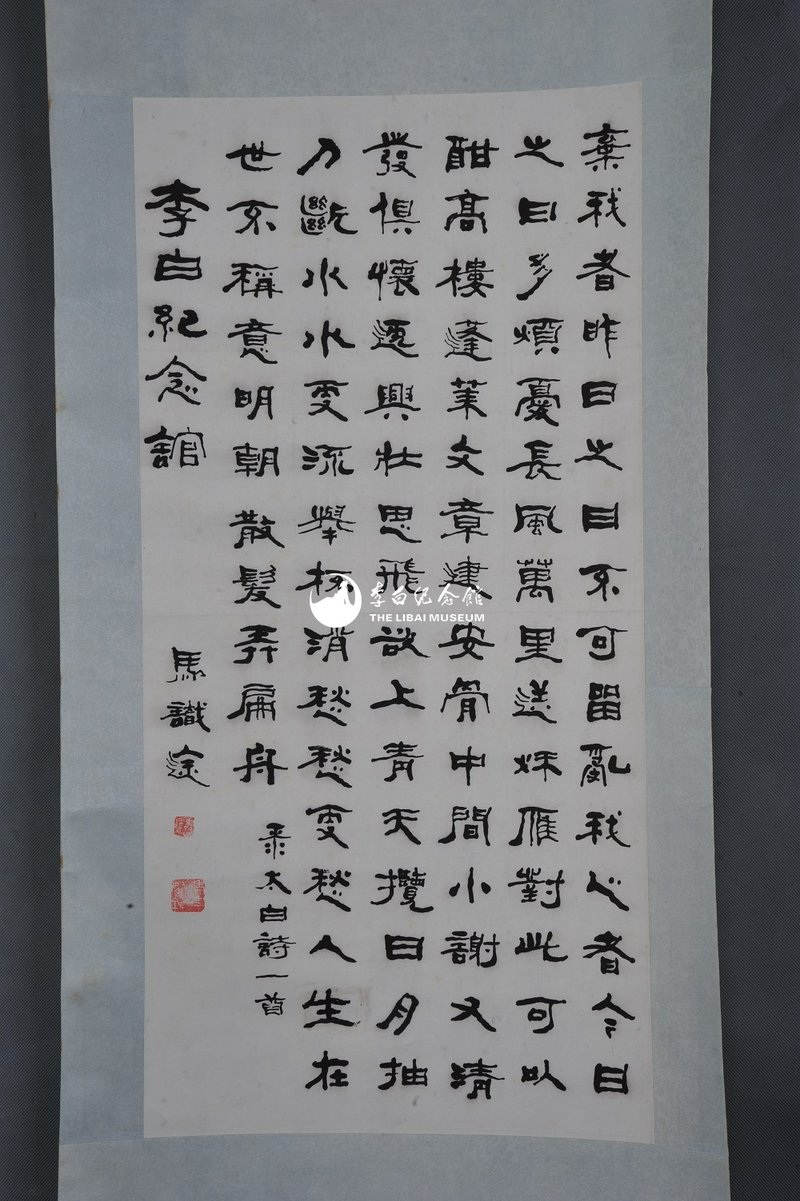 棄我者昨日之日不可留亂我心者今日
之日多煩憂長風萬里送秋雁對此可以
酣高樓蓬萊文章建安骨中間小謝又清
發俱懷逸興壯思飛欲上青天攬日月抽
刀斷水水更流舉杯消愁愁更愁人生在
世不稱意明朝散髮弄扁舟
录太白詩一首
李白紀念館
馬識途
李白纪念館
THE LIBAI MUSEUM